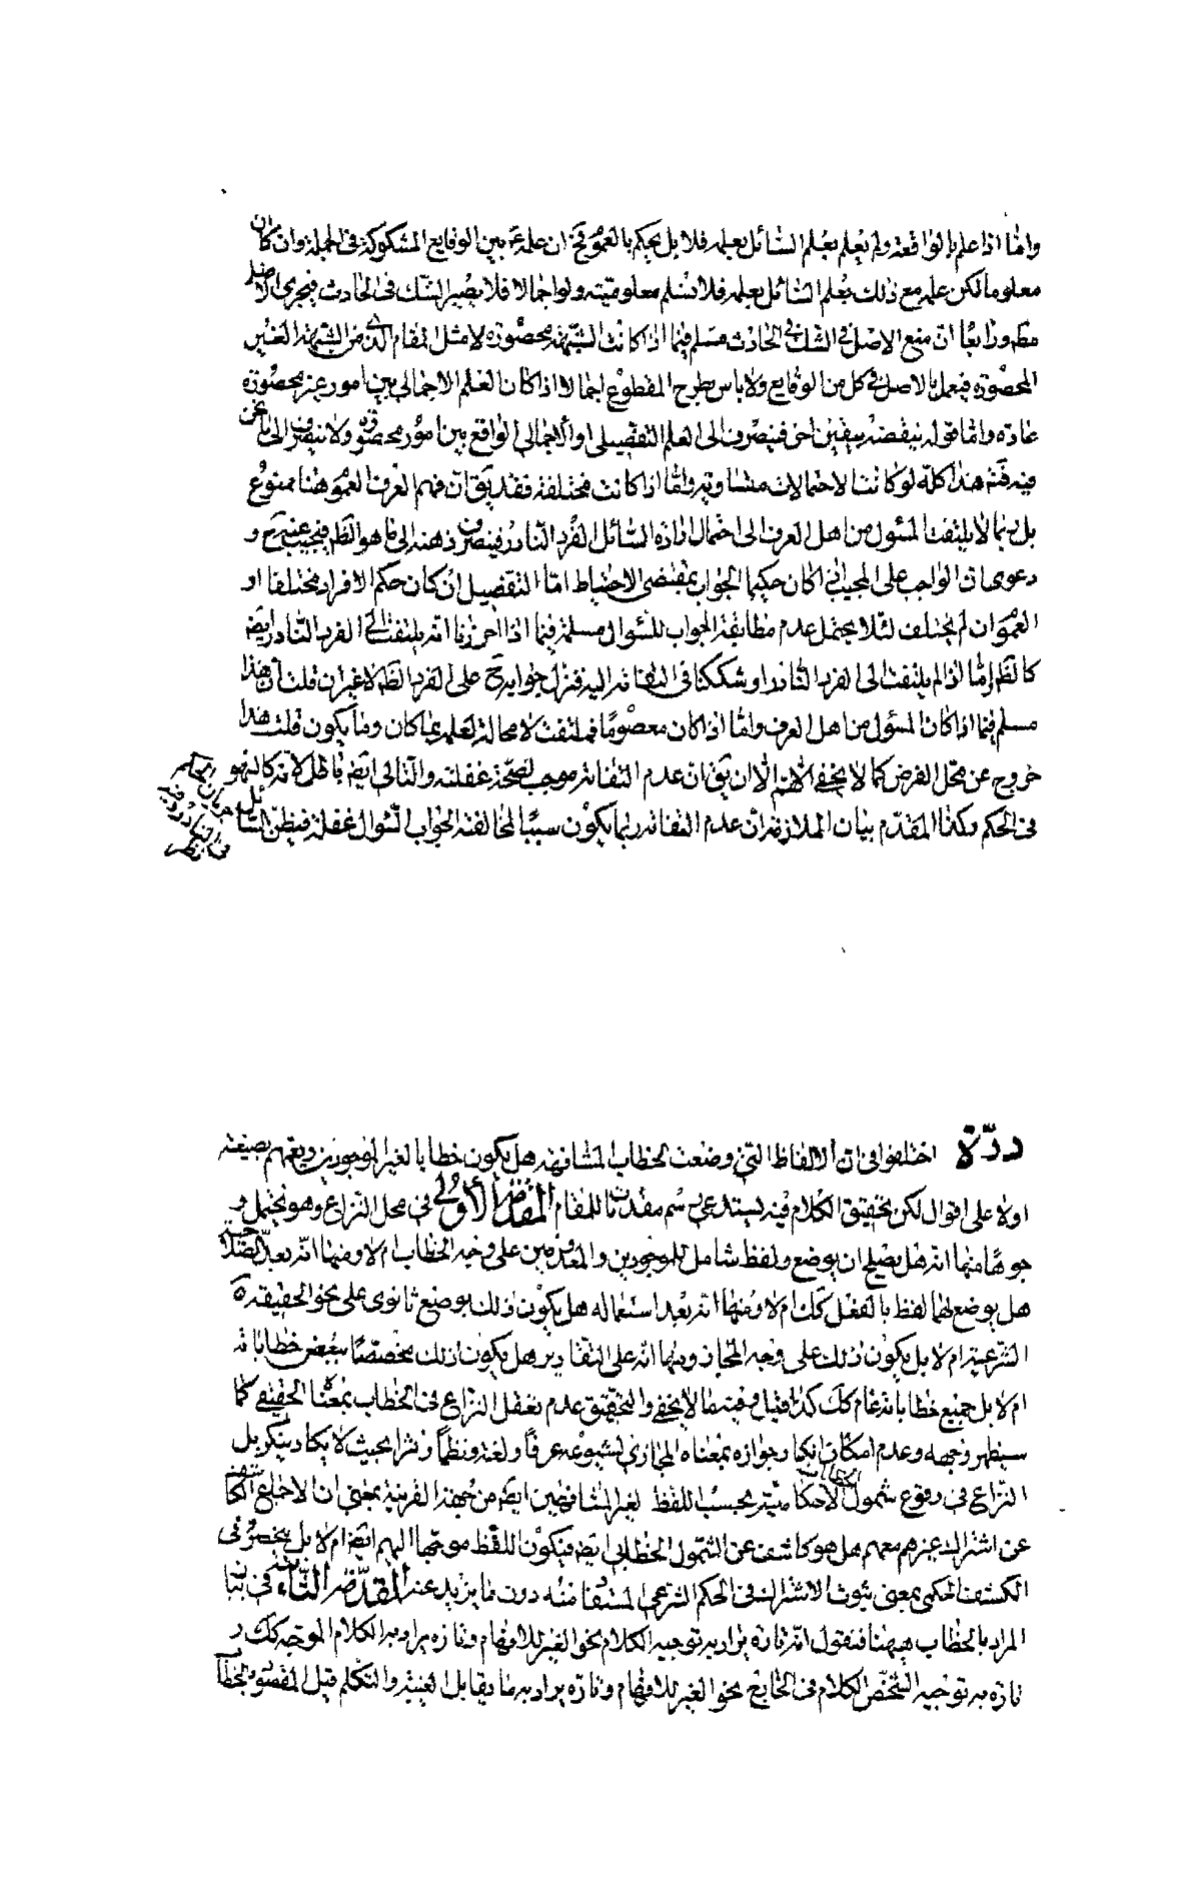 واما اذا علم بالواقعة ولم يعلم بعلم السائل بعلمه فلا بل يحكم بالعموم فح ان علمه بين الوقايع المشكوكة فى الجملة وان كان
معلوما لكن علمه مع ذلك بعلم السائل بعلمه فلا نسلم معلوميته ولو اجمالا فلا يصير الشك فى الحادث فيجرى الاصل
مطم ورابعا ان منع الاصل فى الشك فى الحادث مسلم فيما اذا كانت الشبهة محصورة لا مثل المقام الذى من الشبهة الغير
المحصورة فيعمل بالاصل فى كل من الوقايع ولا باس بطرح المقطوع اجمالا اذا كان العلم الاجمالى بين امور غير محصورة
عادة واما قوله ينقضه بيقين اخر فينصرف الى العلم التفصيلى او الاجمالى الواقع بين امور محصورة ولا ينصرف الى ما نحن
فيه فتم هذا كله لو كانت الاحتمالات متساوية واما اذا كانت مختلفة فقد يق ان فهم العرف العموم هنا ممنوع
بل ربما لا يلتفت المسئول من اهل العرف الى احتمال ارادة السائل الفرد النادر فينصرف ذهنه الى ما هو الظم فيجيب عنه ح و
دعوى ان الواجب على المجيب اذا كان حكيما الجواب بمقتضى الاحتياط اما التفصيل ان كان حكم الافراد مختلفا او
العموم ان لم يختلف لئلا يحتمل عدم مطابقة الجواب للسئوال مسلمة فيما اذا احرزنا انه يلتفت الى الفرد النادر ايضم
كالظم اما اذا لم يلتفت الى الفرد النادر او شككنا فى التفاته اليه فنزل جوابه ح على الفرد الظم لا غير ان قلت ان هذا
مسلم فيما اذا كان المسئول من اهل العرف واما اذا كان معصوما فملتفت لا محالة لعلمه بما كان وما يكون قلت هذا
خروج عن محل الفرض كما لا يخفى اللهم الا ان يق ان عدم التفاته موجب لصحة غفلته والتالى ايضم باطل لانه كالسهو
فى الحكم وكذا المقدم بيان الملازمة ان عدم التفاته ربما يكون سببا لمخالفة الجواب السئوال غفلة فيظن السائل
جريان الحكم
فى النادر وفيه
نظر
درّة اختلفوا فى ان الالفاظ التى وضعت لخطاب المشافهة هل يكون خطابا لغير الموجودين ويعمهم بصيغته
اولا على اقوال لكن تحقيق الكلام فيه يستدعى رسم مقدمات للمقام المقدمة الاولى فى محل النزاع وهو يحتمل و
جوها منها انه هل يصلح ان يوضع لفظ شامل للموجودين والمعدومين على وجه الخطاب ام لا ومنها انه بعد الصلاحية
هل يوضع لها لفظ بالفعل كك ام لا ومنها انه بعد استعماله هل يكون ذلك بوضع ثانوى على نحو الحقيقة
الشرعية ام لا بل يكون ذلك على وجه المجاز ومنها انه على التقادير هل يكون ذلك مختصا ببعض خطاباته
ام لا بل جميع خطاباته عام كك كذا قيل وفيه ما لا يخفى والتحقيق عدم تعقل النزاع فى الخطاب بمعناه الحقيقى كما
سيظهر وجهه وعدم امكان انكار جوازه بمعناه المجازى لشيوعه عرفا ولغة ونظما ونثرا بحيث لا يكاد ينكر بل
النزاع فى وقوع شمول الاحكام بحسب اللفظ لغير المشافهين ايضم من جهة القرينة بمعنى ان الاجماع الكاشف
عن اشتراك غيرهم معهم هل هو كاشف عن الشمول الخطابى ايضم فيكون اللفظ موجها اليهم ايضم ام لا بل ينحصر فى
الكشف الحكمى بمعنى ثبوت الاشتراك فى الحكم الشرعى المستفاد منه دون ما يزيد عنه المقدمة الثانية فى بيان
المراد بالخطاب هيهنا فنقول انه تارة يراد به توجيه الكلام نحو الغير للافهام وتارة يراد به الكلام الموجه كك و
تارة به توجيه الشخص الكلام فى الخارج نحو الغير للافهام وتارة يراد به ما يقابل الغيبة والتكلم قيل المقصود بالخطاب